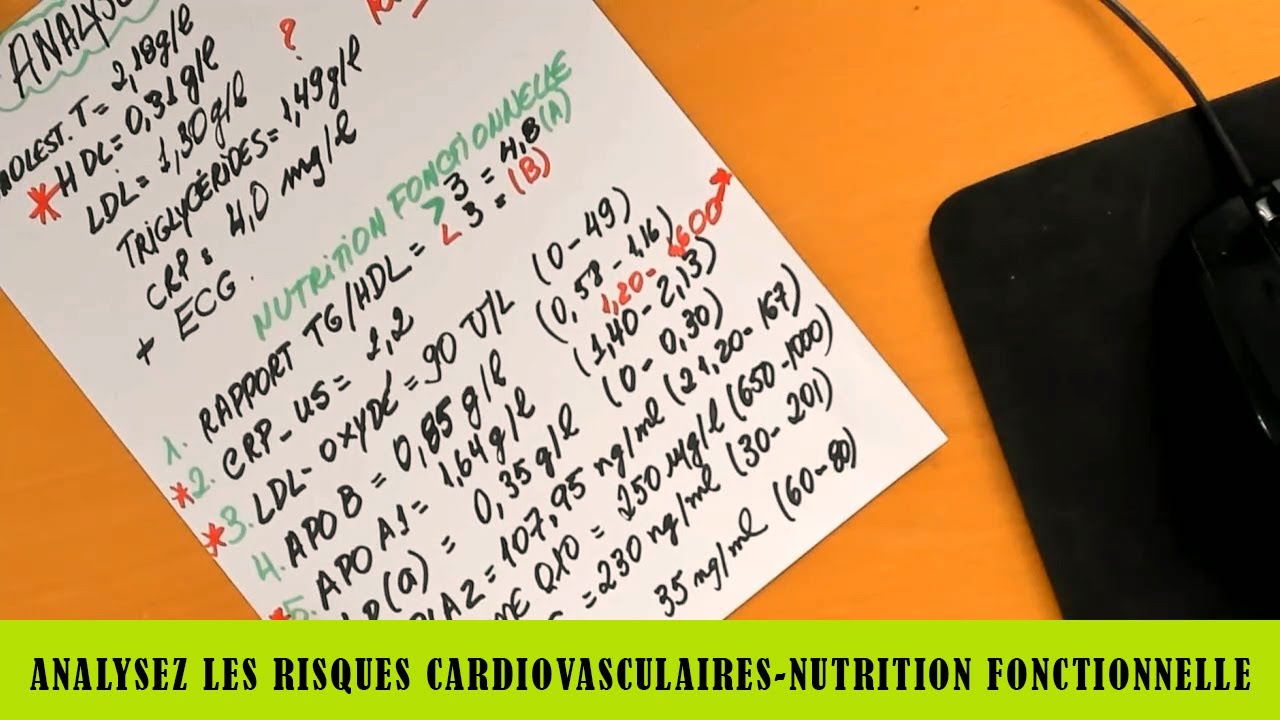 ANALYS
?
CHOLEST. T = 2,18 g/l
* HDL = 0,31 g/l
LDL = 1,30 g/l
TRIGLYCÉRIDES = 1,49 g/l
CRP : 4,0 mg/l
+ ECG.
NUTRITION FONCTIONNELLE
1. RAPPORT TG/HDL = > 3 = 4,8 (A)
< 3 = (B)
* 2. CRP_US = 1,2
* 3. LDL-OXYDÉ = 90 U/L (0-49)
4. APO B = 0,85 g/l (0,58-1,16)
1,20-1600
* 5. APO A1 = 1,64 g/l (1,40-2,13)
(a) = 0,35 g/l (0-0,30)
PLA2 = 107,95 ng/ml (21,20-167)
Q10 = 250 µg/l (650-1000)
= 230 ng/ml (30-201)
35 ng/ml (60-80)
ANALYSEZ LES RISQUES CARDIOVASCULAIRES-NUTRITION FONCTIONNELLE